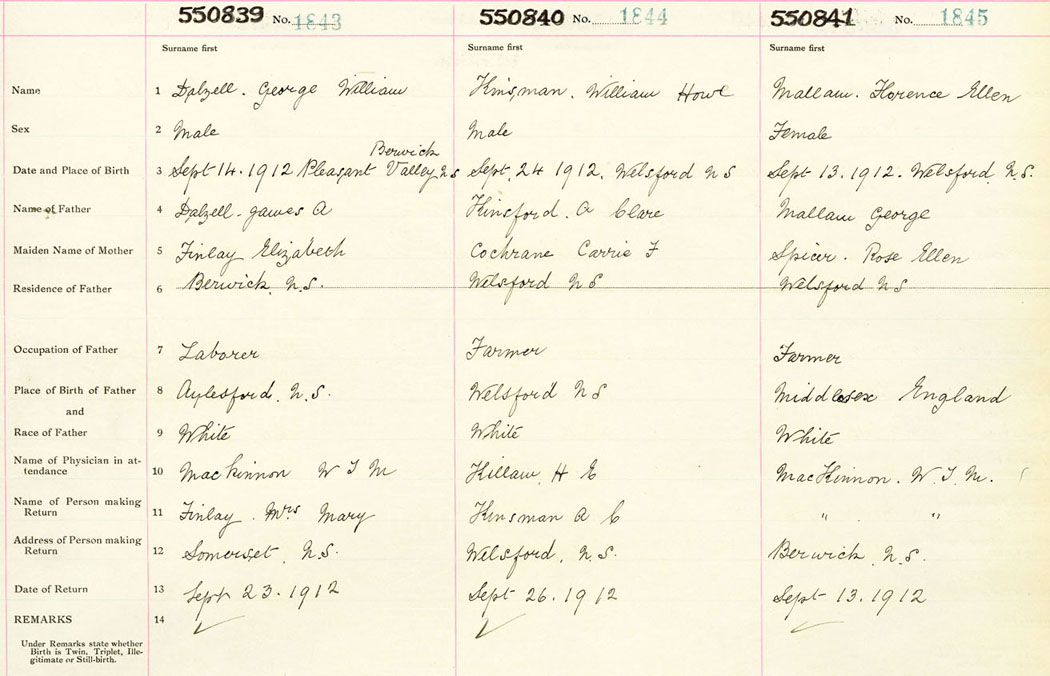 550839 No. 1843 550840 No. 1844 550841 No. 1845
Surname first Surname first Surname first
Name 1 Dalzell. George William Kinsman. William Howe Mallam. Florence Ellen
Sex 2 Male Male Female
Berwick
Date and Place of Birth 3 Sept 14. 1912 Pleasant Valley N S Sept. 24 1912. Welsford N S Sept 13. 1912. Welsford N.S.
Name of Father 4 Dalzell. James A Kinsford. A Clare Mallam George
Maiden Name of Mother 5 Finlay Elizabeth Cochrane Carrie F Spicer. Rose Ellen
Residence of Father 6 Berwick, N.S. Welsford N S Welsford N S
Occupation of Father 7 Laborer Farmer Farmer
Place of Birth of Father 8 Aylesford, N.S. Welsford N S Middlesex England
and
Race of Father 9 White White White
Name of Physician in at-
tendance 10 MacKinnon W J M Killam, H E MacKinnon. W. J. M.
Name of Person making
Return 11 Finlay. Mrs Mary Kinsman A C " "
Address of Person making
Return 12 Somerset, N.S. Welsford, N.S. Berwick, N.S.
Date of Return 13 Sept 23. 1912 Sept 26. 1912 Sept 13. 1912
REMARKS 14
Under Remarks state whether
Birth is Twin, Triplet, Ille-
gitimate or Still-birth.